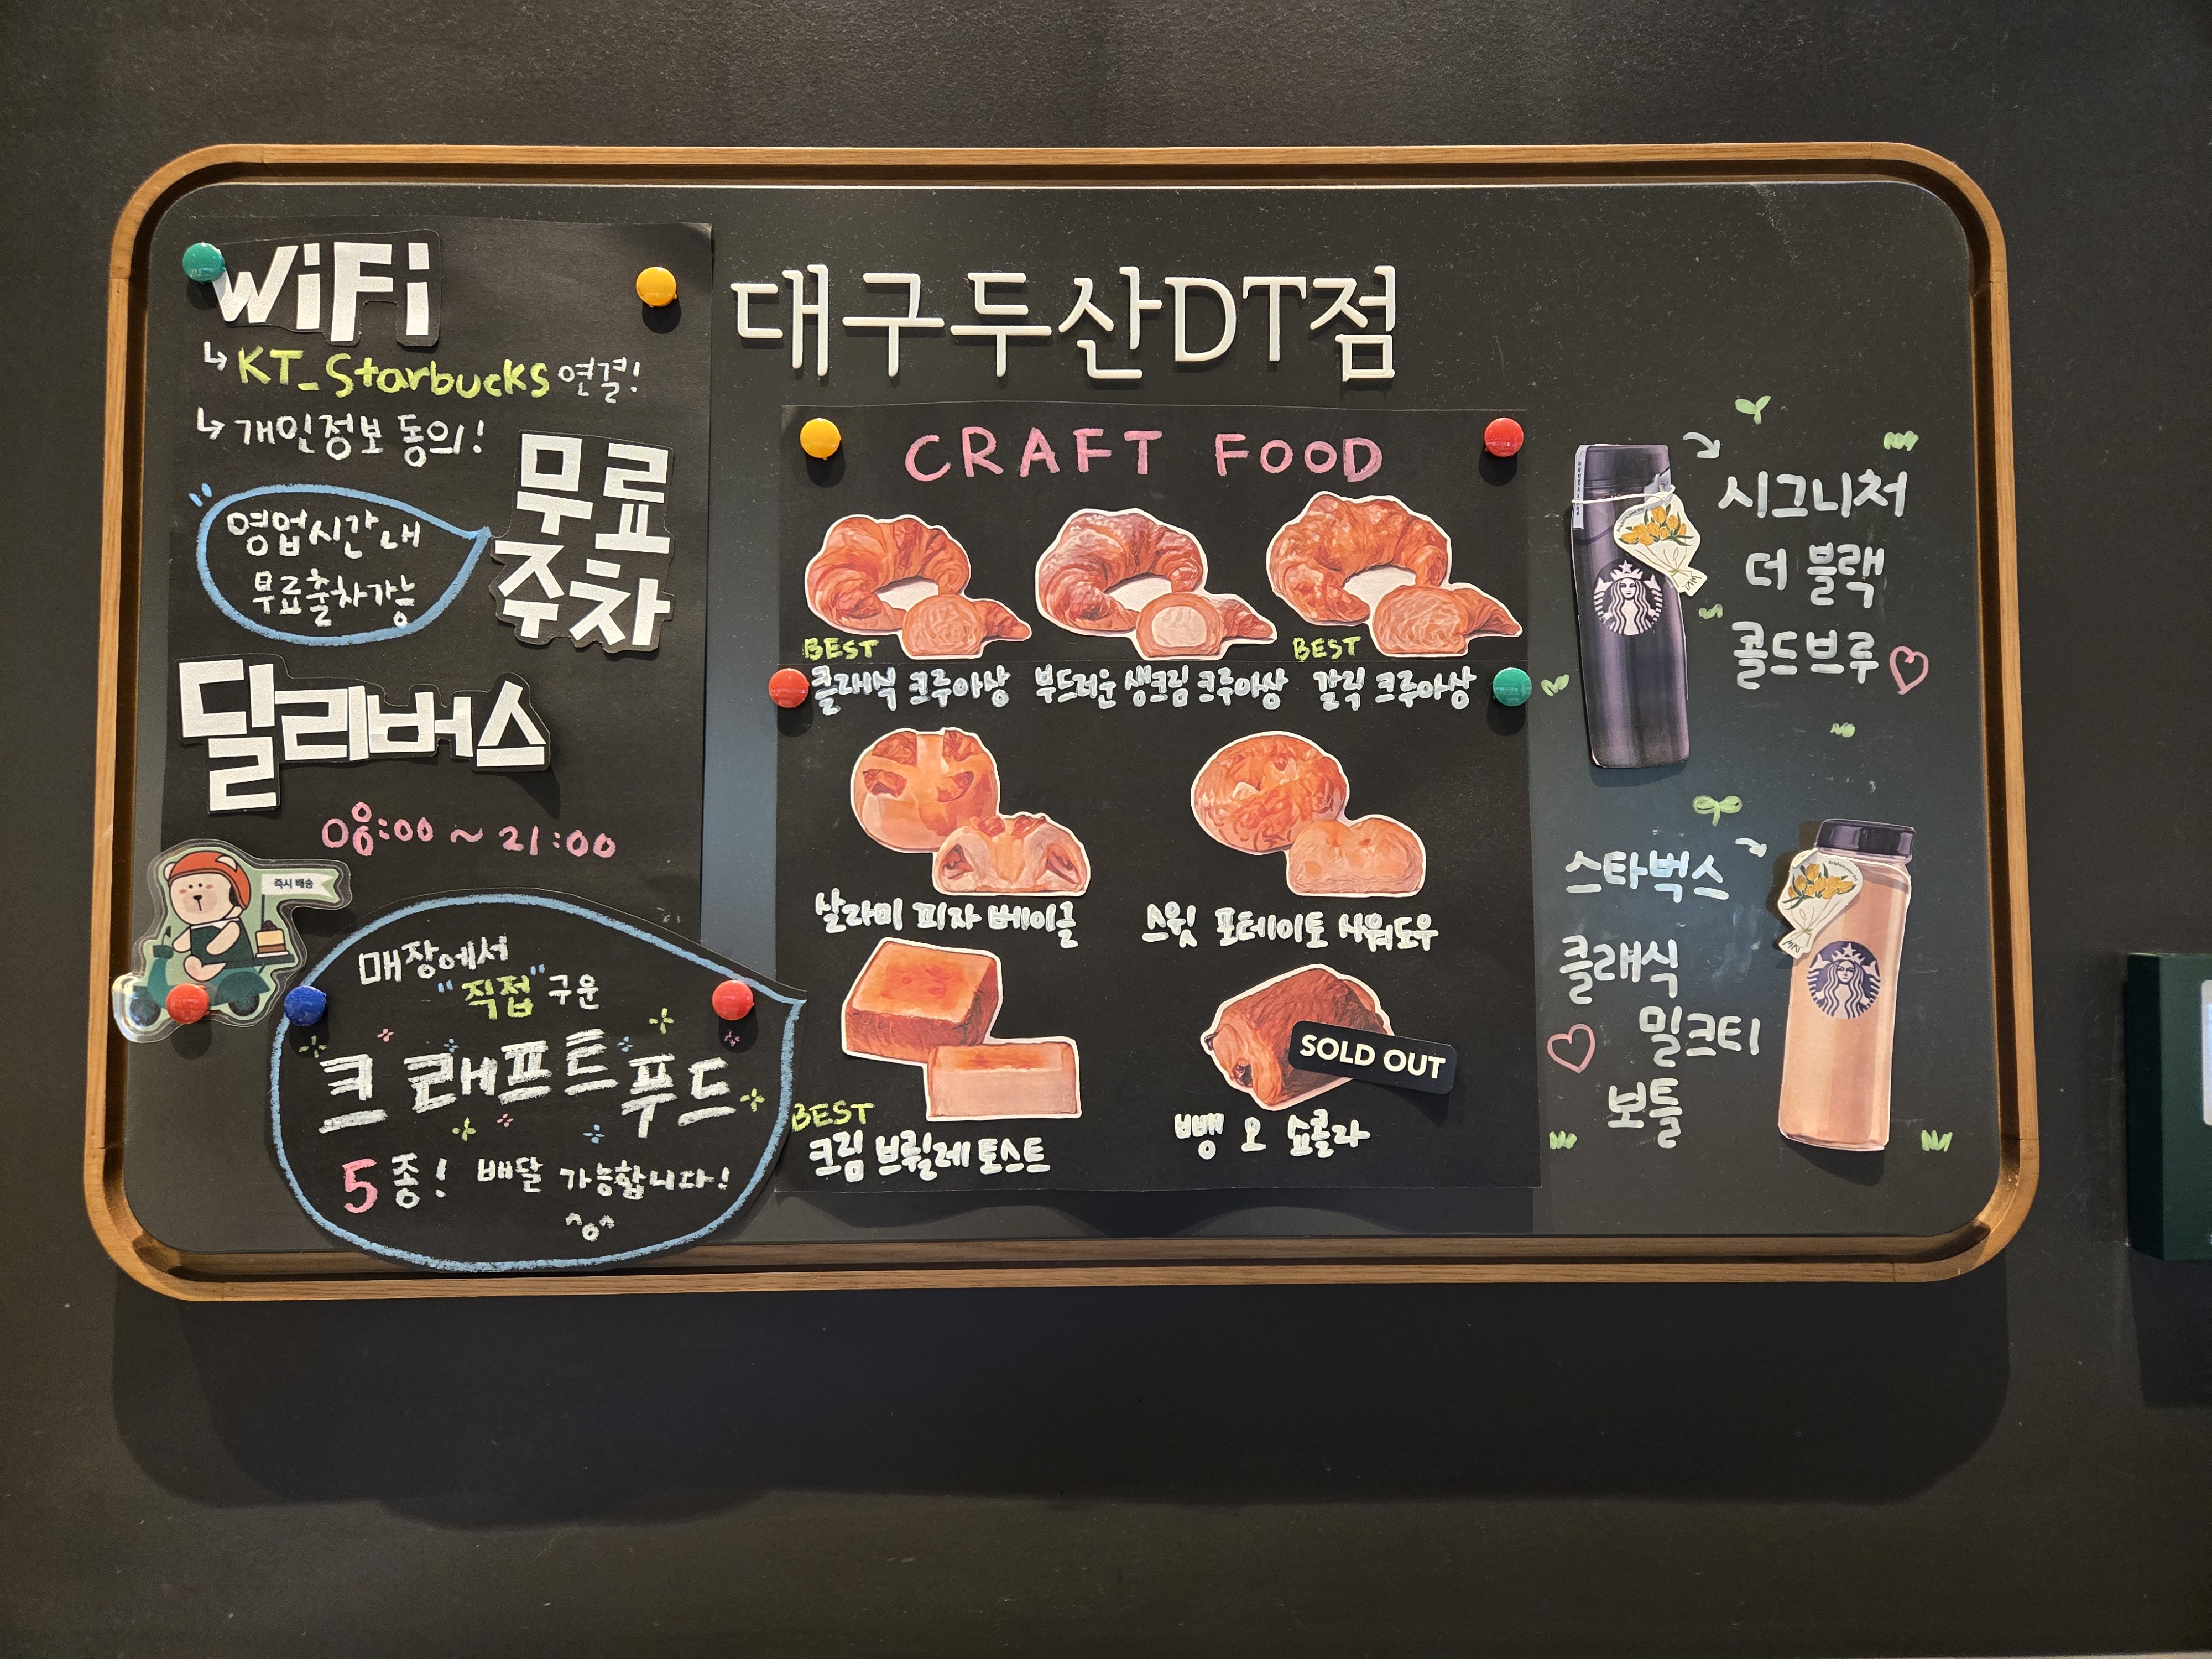 WiFi
KT_Starbucks 연결!
개인정보 동의!
무료
주차
영업시간 내
무료출차가능
딜리버스
08:00 ~ 21:00
즉시 배송
매장에서
"직접" 구운
크래프트 푸드
5종! 배달 가능합니다!
^o^
대구두산DT점
CRAFT FOOD
BEST
BEST
클래식 크루아상
부드러운 생크림 크루아상
갈릭 크루아상
살라미 피자 베이글
스윗 포테이토 사워도우
SOLD OUT
BEST
크림 브륄레 토스트
뺑 오 쇼콜라
시그니처
더 블랙
콜드브루
스타벅스
클래식
밀크티
보틀